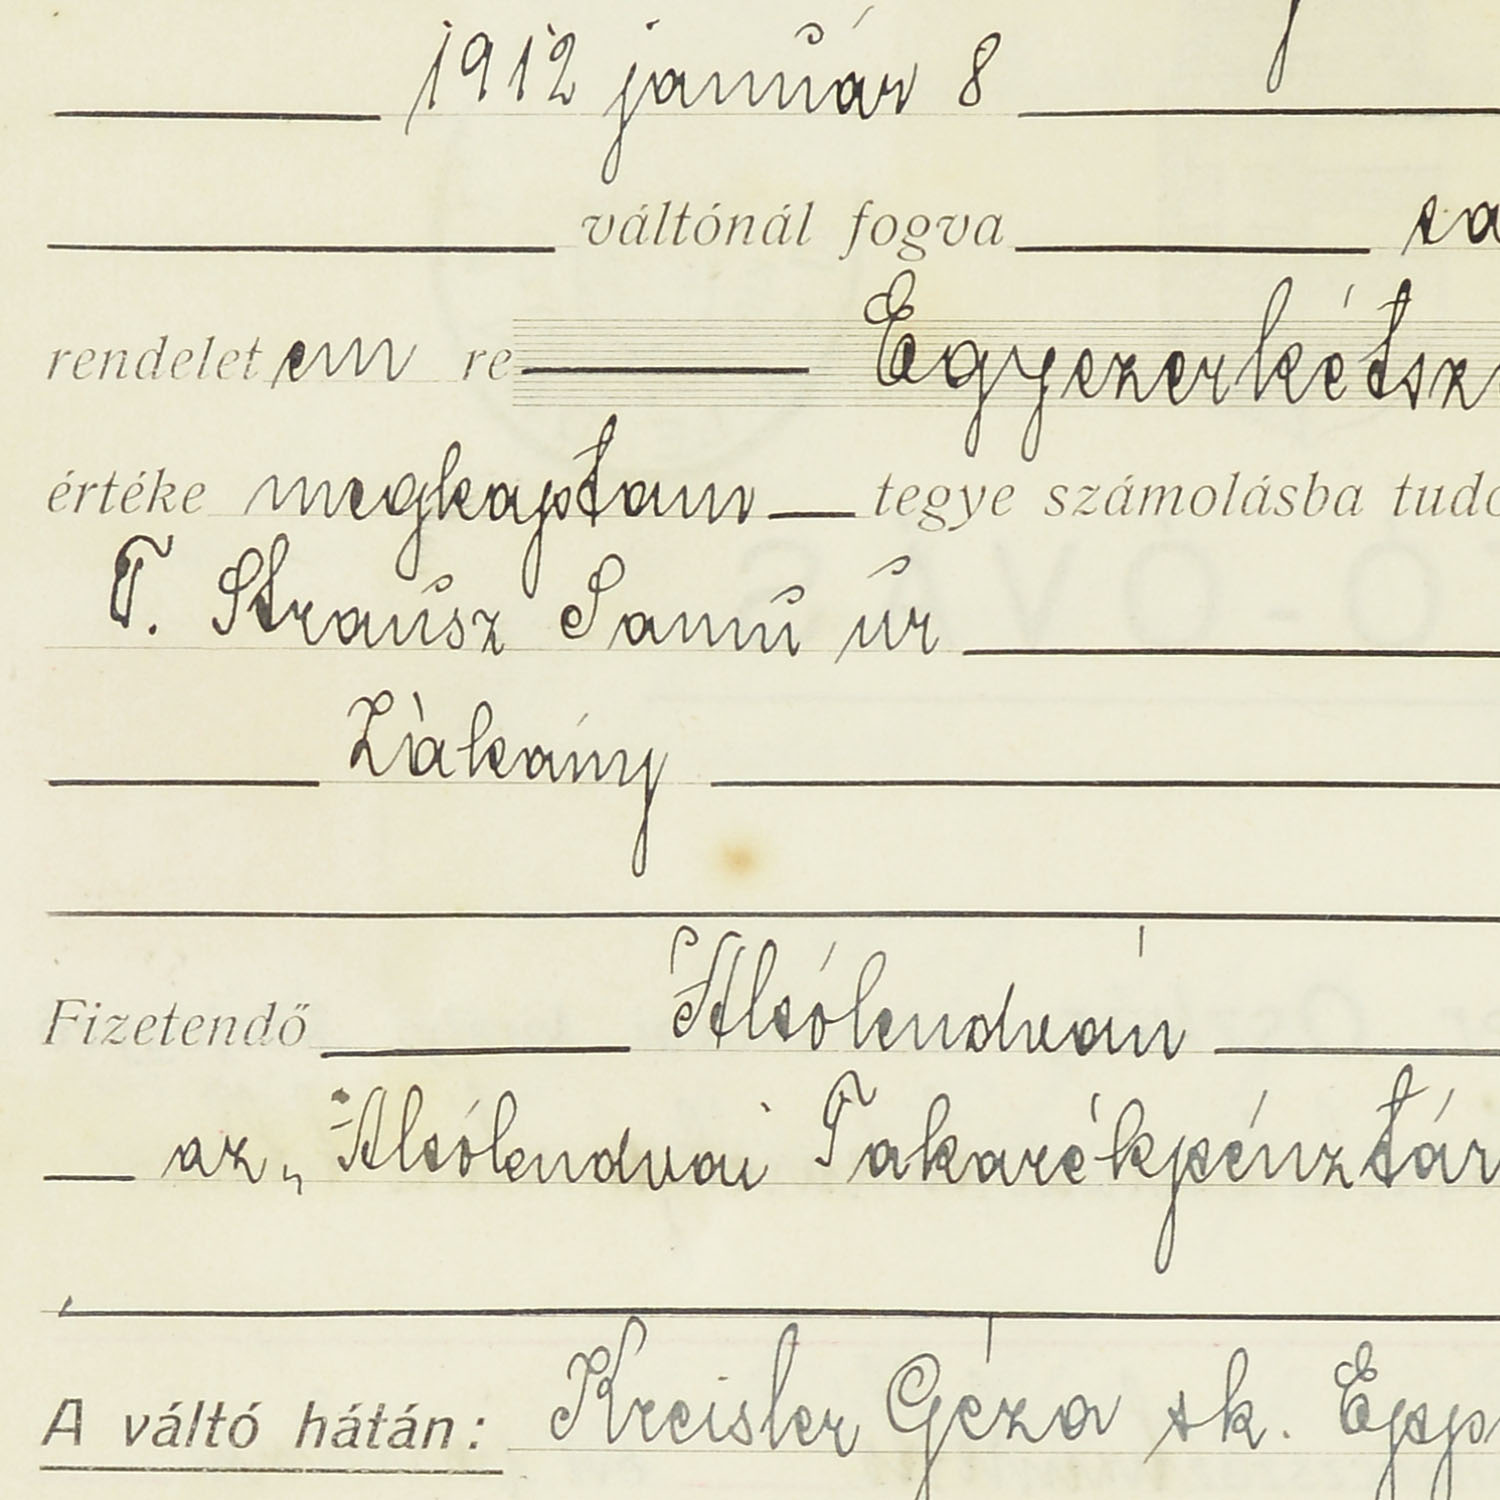 1912 január 8
váltónál fogva
rendelet em re Egyezerkétsz
értéke megkaptam tegye számolásba tudo
T. Strausz Samu úr
Zákány
Fizetendő Alsólendván
az „Alsólendvai Takarékpénztár
A váltó hátán: Kreisler Géza sk. Epp